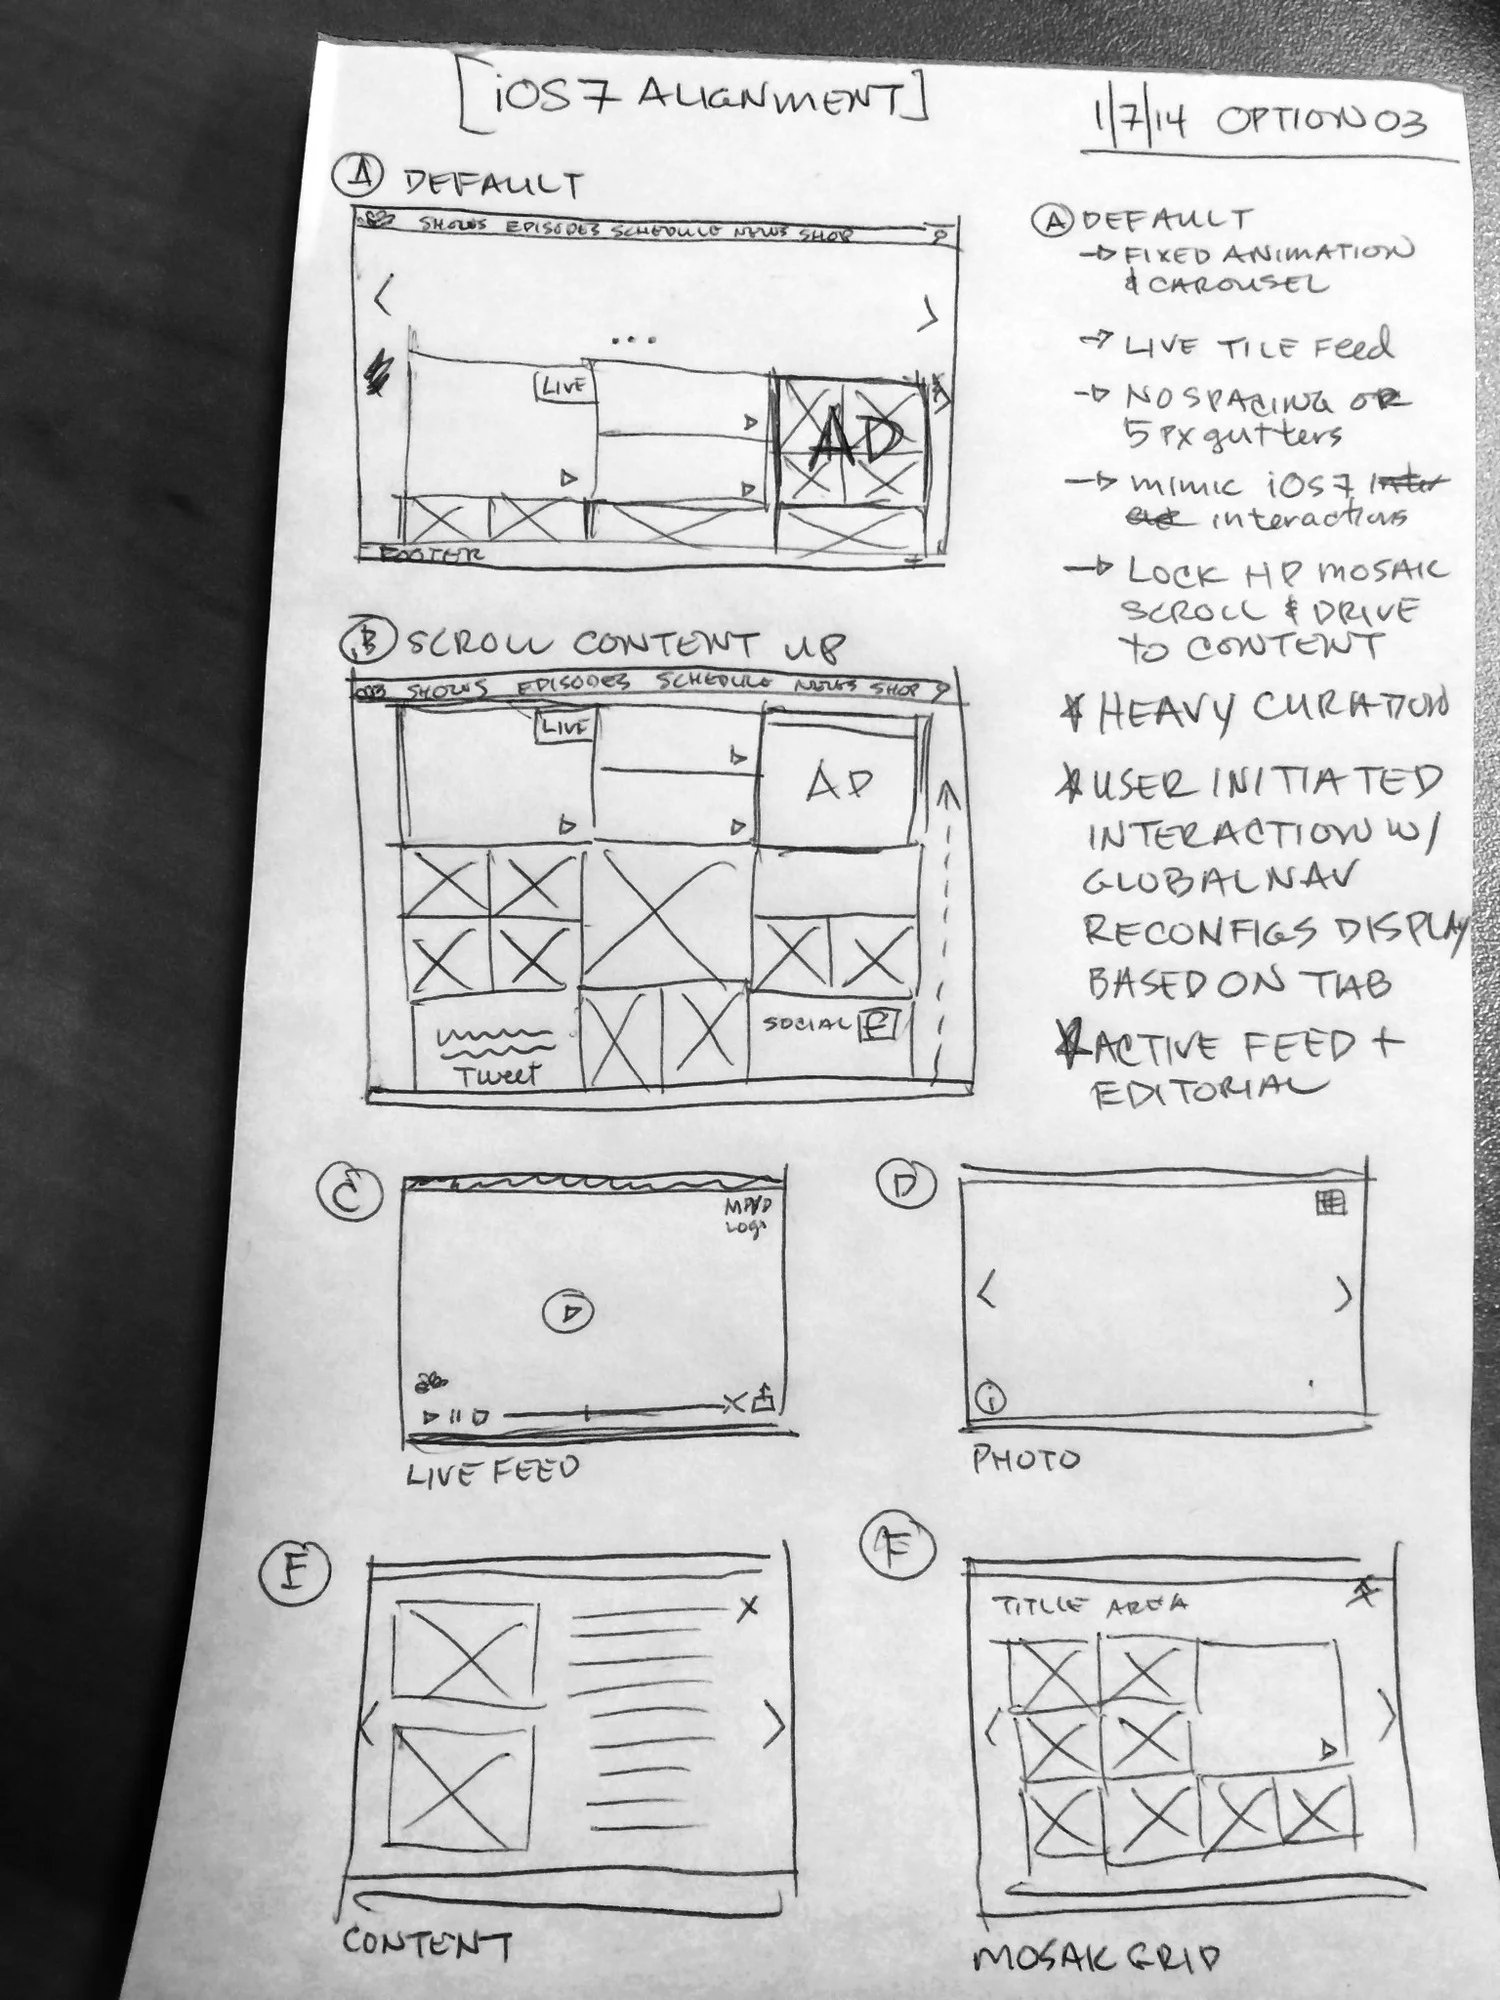 [iOS7 ALIGNMENT]
1/7/14 OPTION 03
A DEFAULT
SHOWS EPISODES SCHEDULE NEWS SHOP
LIVE
AD
FOOTER
B SCROLL CONTENT UP
SHOWS EPISODES SCHEDULE NEWS SHOP
LIVE
AD
Tweet
SOCIAL F
A DEFAULT
→ FIXED ANIMATION
& CAROUSEL
→ LIVE TILE Feed
→ NO SPACING OR
5 PX gutters
→ mimic iOS7
interactions
→ LOCK HP MOSAIC
SCROLL & DRIVE
to CONTENT
* HEAVY CURATION
* USER INITIATED
INTERACTION W/
GLOBAL NAV
RECONFIGS DISPLAY
BASED ON TAB
* ACTIVE FEED +
EDITORIAL
C
MPVD
Logo
LIVE FEED
D
i
PHOTO
E
X
CONTENT
F
TITLE AREA
MOSAIC GRID